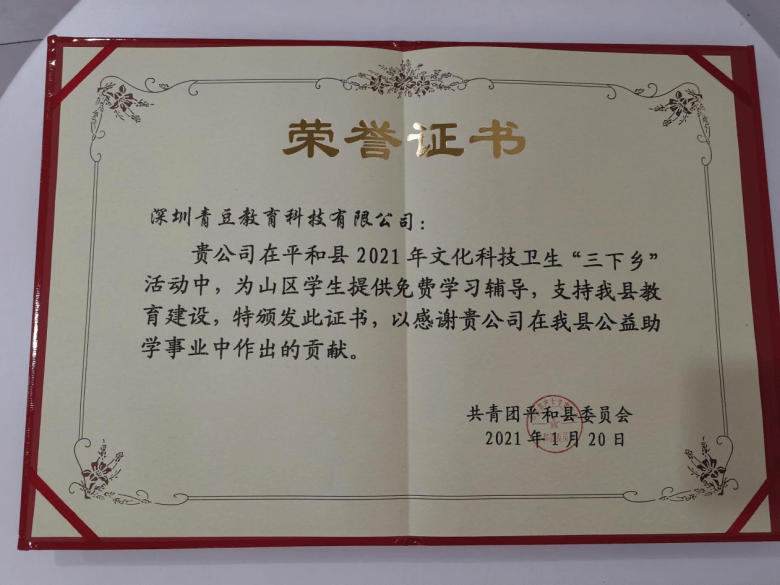 荣誉证书
深圳青豆教育科技有限公司：
贵公司在平和县2021年文化科技卫生“三下乡”
活动中，为山区学生提供免费学习辅导，支持我县教
育建设，特颁发此证书，以感谢贵公司在我县公益助
学事业中作出的贡献。
共青团平和县委员会
2021年1月20日